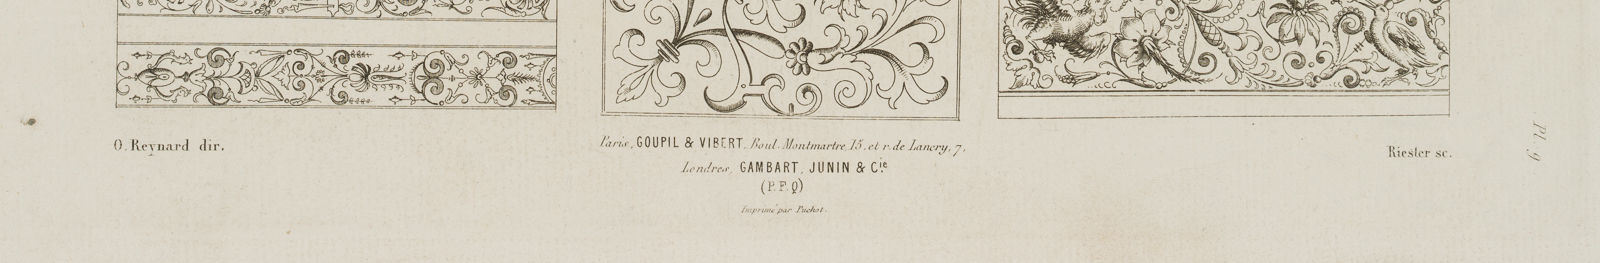 O. Reynard dir.
Paris, GOUPIL & VIBERT, Boul. Montmartre, 15, et r. de Lancry, 7.
Londres, GAMBART, JUNIN & Cie
(P. F. Q)
Imprimé par Pachot.
Riester sc.
Pl. 9